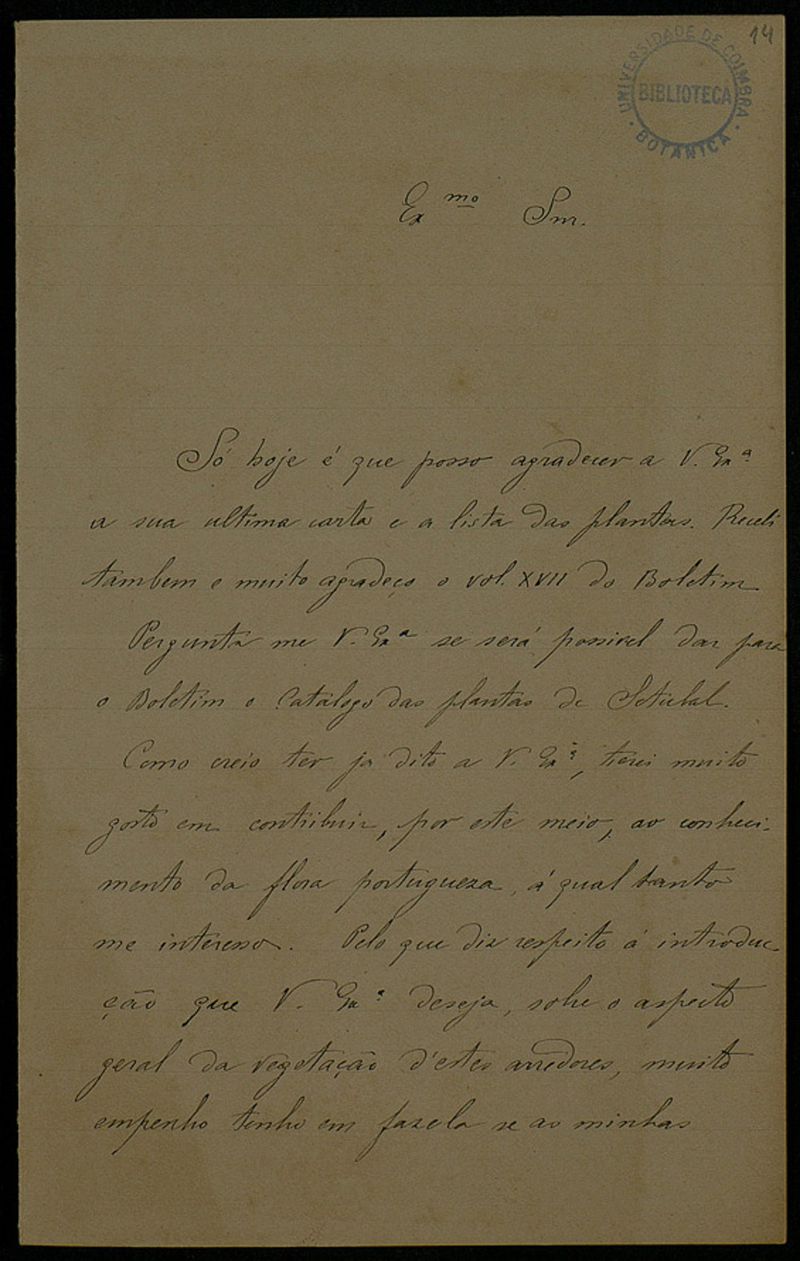 14
UNIVERSIDADE DE COIMBRA
BIBLIOTECA
BOTANICA
Ex.mo Snr.
Só hoje é que posso agradecer a V. Exª
a sua ultima carta e a lista das plantas. Recebi
tambem e muito agradeço o vol. XVII do Boletim
Pergunta me V. Exª se será possivel dar para
o Boletim o Catalogo das plantas de Setubal.
Como creio ter ja dito a V. Exª, terei muito
gosto em contribuir, por este meio, ao conheci-
mento da flora portugueza, á qual tanto
me interesso. Pelo que diz respeito á introduc-
ção que V. Exª deseja, sobre o aspecto
geral da vegetação d'estes arredores, muito
empenho tenho em fazela se as minhas